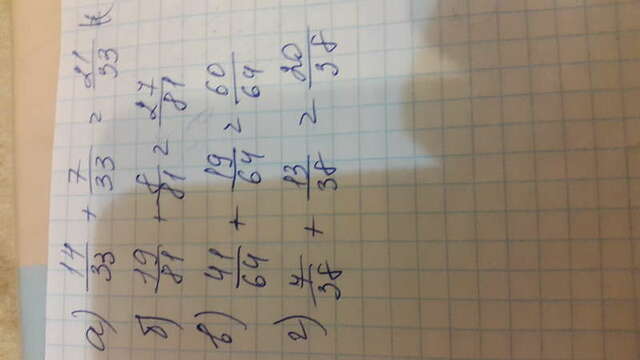 а) 14/33 + 7/33 = 21/33
б) 19/81 + 8/81 = 27/81
в) 41/64 + 19/64 = 60/64
г) 7/38 + 13/38 = 20/38